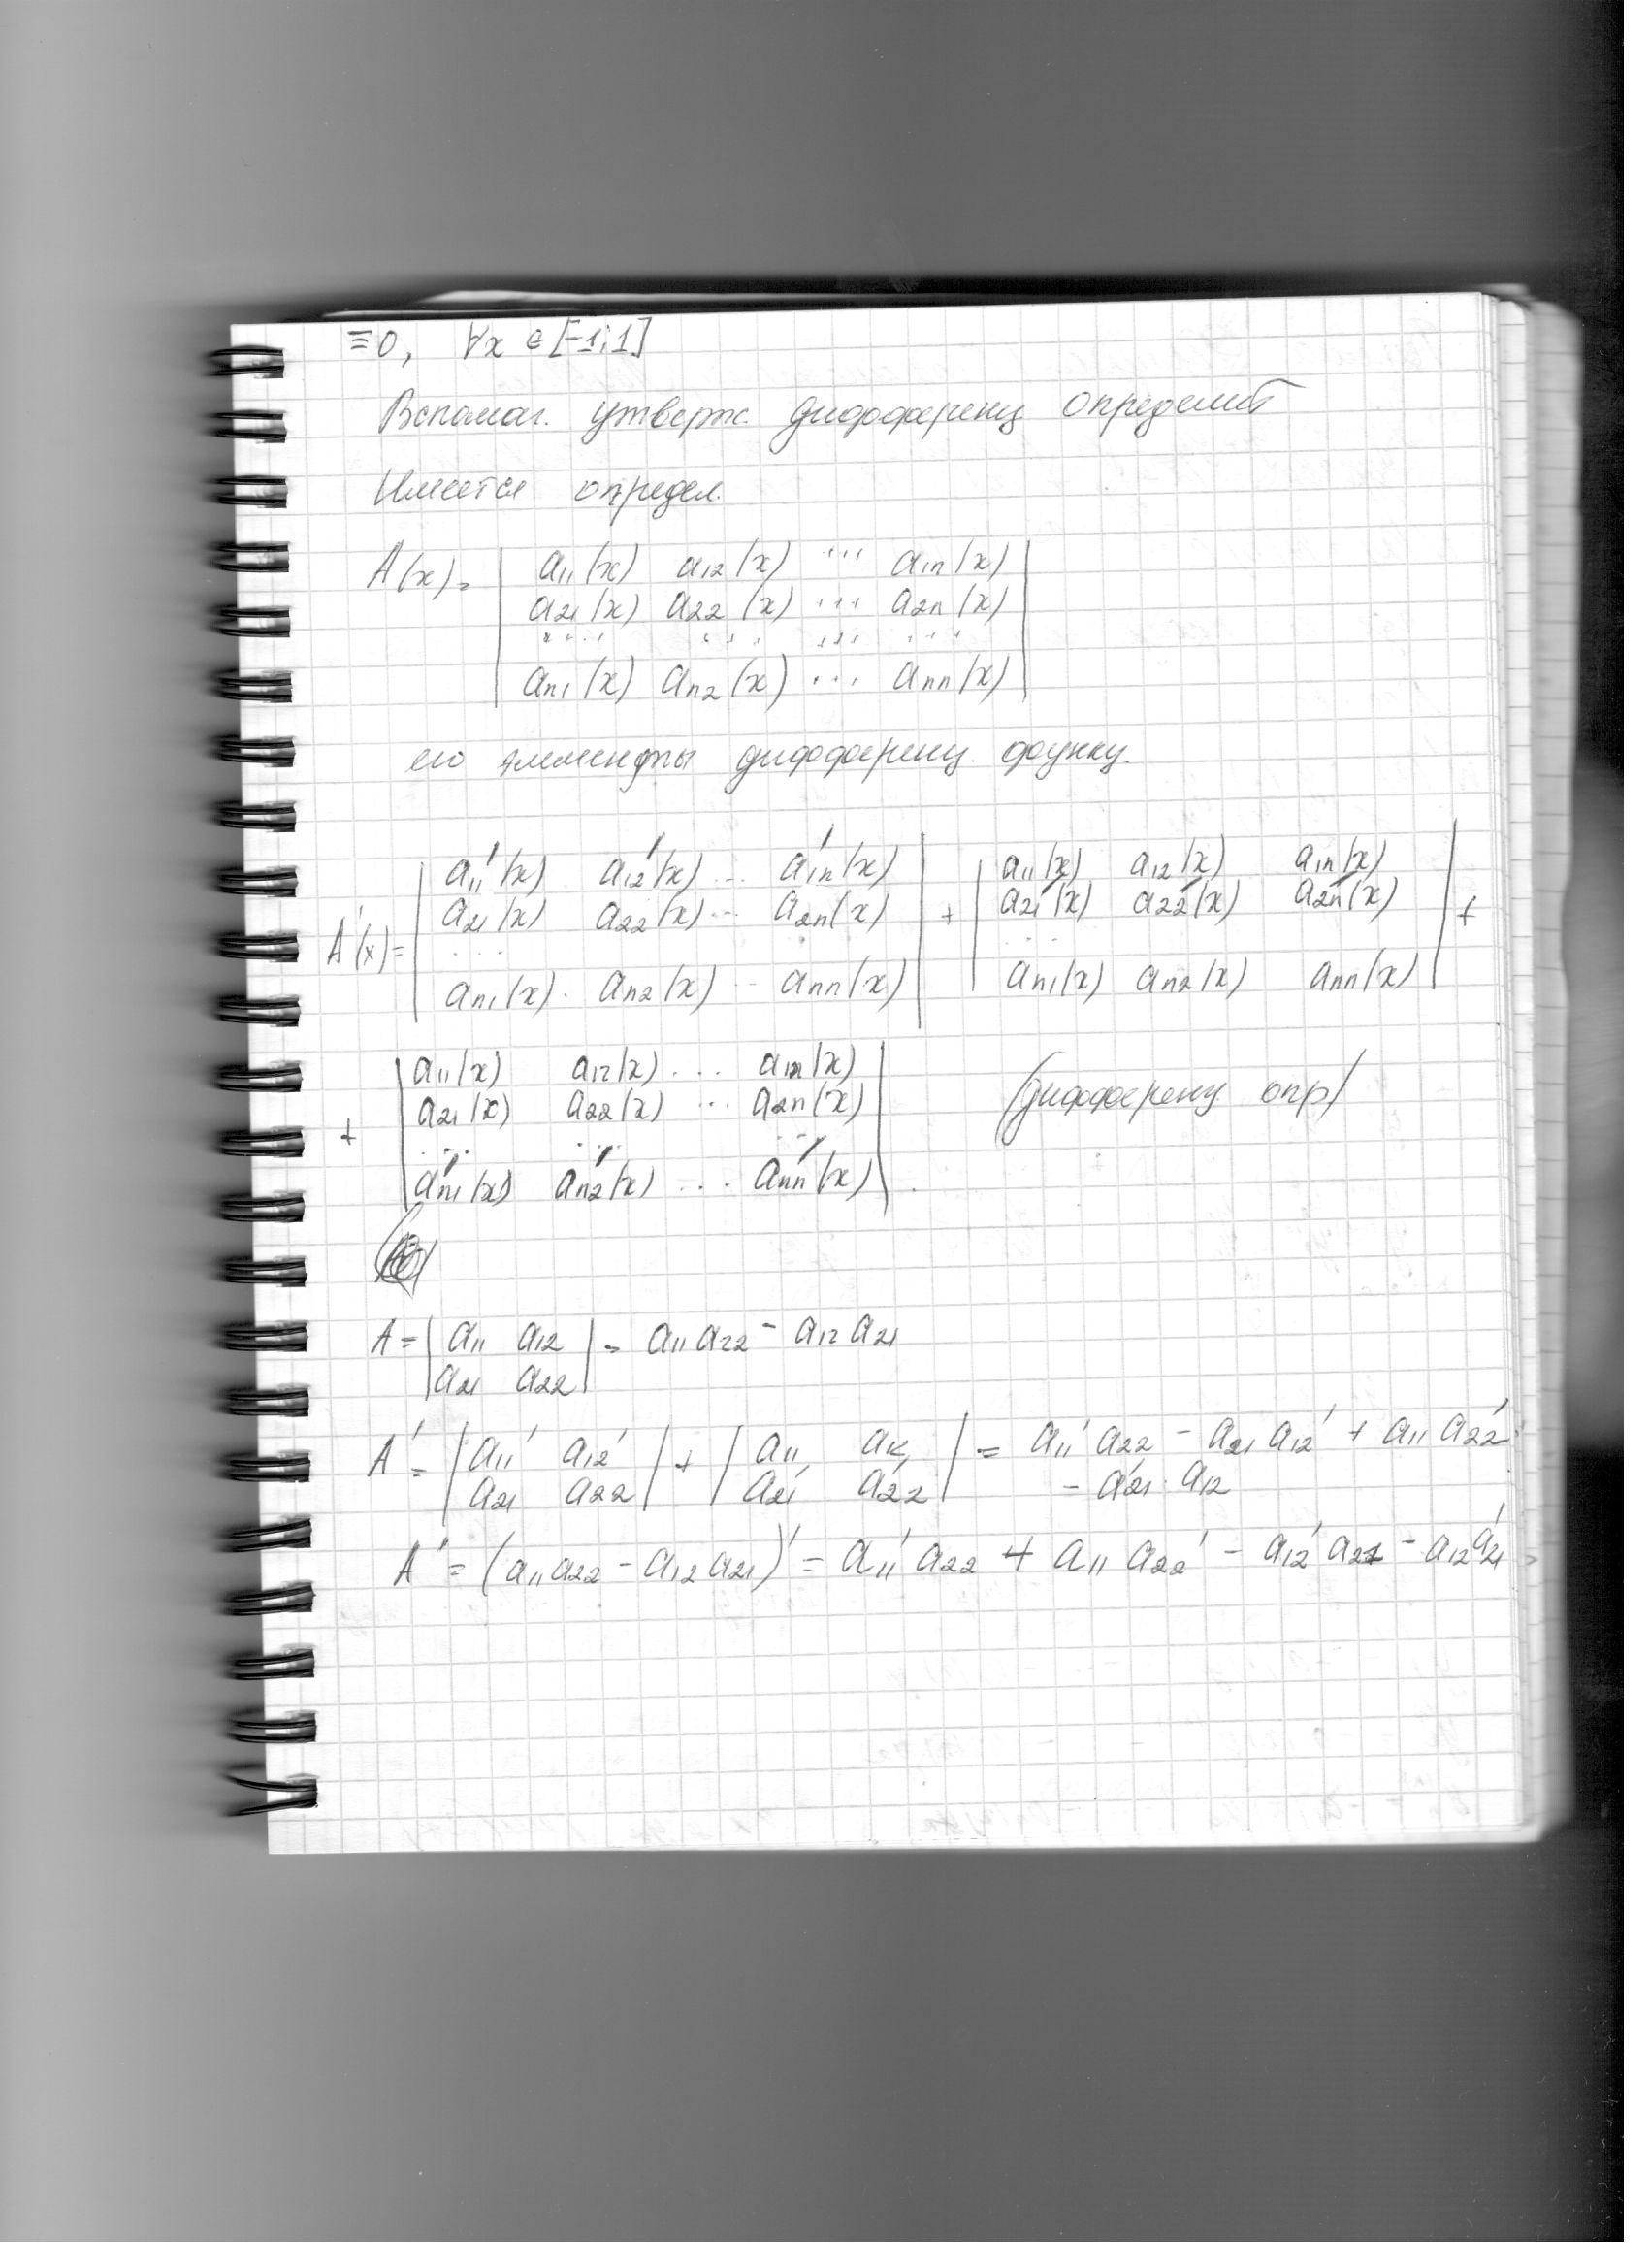 ≡0, ∀x ∈ [-1;1]
Вспомаг. утверж. дифференц определит
Имеется определ.
A(x)= | a₁₁(x) a₁₂(x) ... a₁n(x) |
| a₂₁(x) a₂₂(x) ... a₂n(x) |
.... ... ... ....
| an₁(x) an₂(x) ... ann(x) |
его элементы дифференц. функц.
A'(x)= | a₁₁'(x) a₁₂'(x) ... a₁n'(x) | + | a₁₁(x) a₁₂(x) a₁n(x) | +
| a₂₁(x) a₂₂(x) ... a₂n(x) | | a₂₁'(x) a₂₂'(x) a₂n'(x) |
... ...
| an₁(x) an₂(x) ... ann(x) | | an₁(x) an₂(x) ann(x) |
+ | a₁₁(x) a₁₂(x) ... a₁n(x) | (дифференц опр)
| a₂₁(x) a₂₂(x) ... a₂n(x) |
... ... ...
| an₁'(x) an₂'(x) ... ann'(x) | .
A = | a₁₁ a₁₂ | = a₁₁ a₂₂ - a₁₂ a₂₁
| a₂₁ a₂₂ |
A' = | a₁₁' a₁₂' | + | a₁₁ a₁₂ | = a₁₁' a₂₂ - a₂₁ a₁₂' + a₁₁ a₂₂'
| a₂₁ a₂₂ | | a₂₁' a₂₂' | - a₂₁' · a₁₂
A' = (a₁₁a₂₂ - a₁₂a₂₁)' = a₁₁' a₂₂ + a₁₁ a₂₂' - a₁₂' a₂₁ - a₁₂a₂₁'